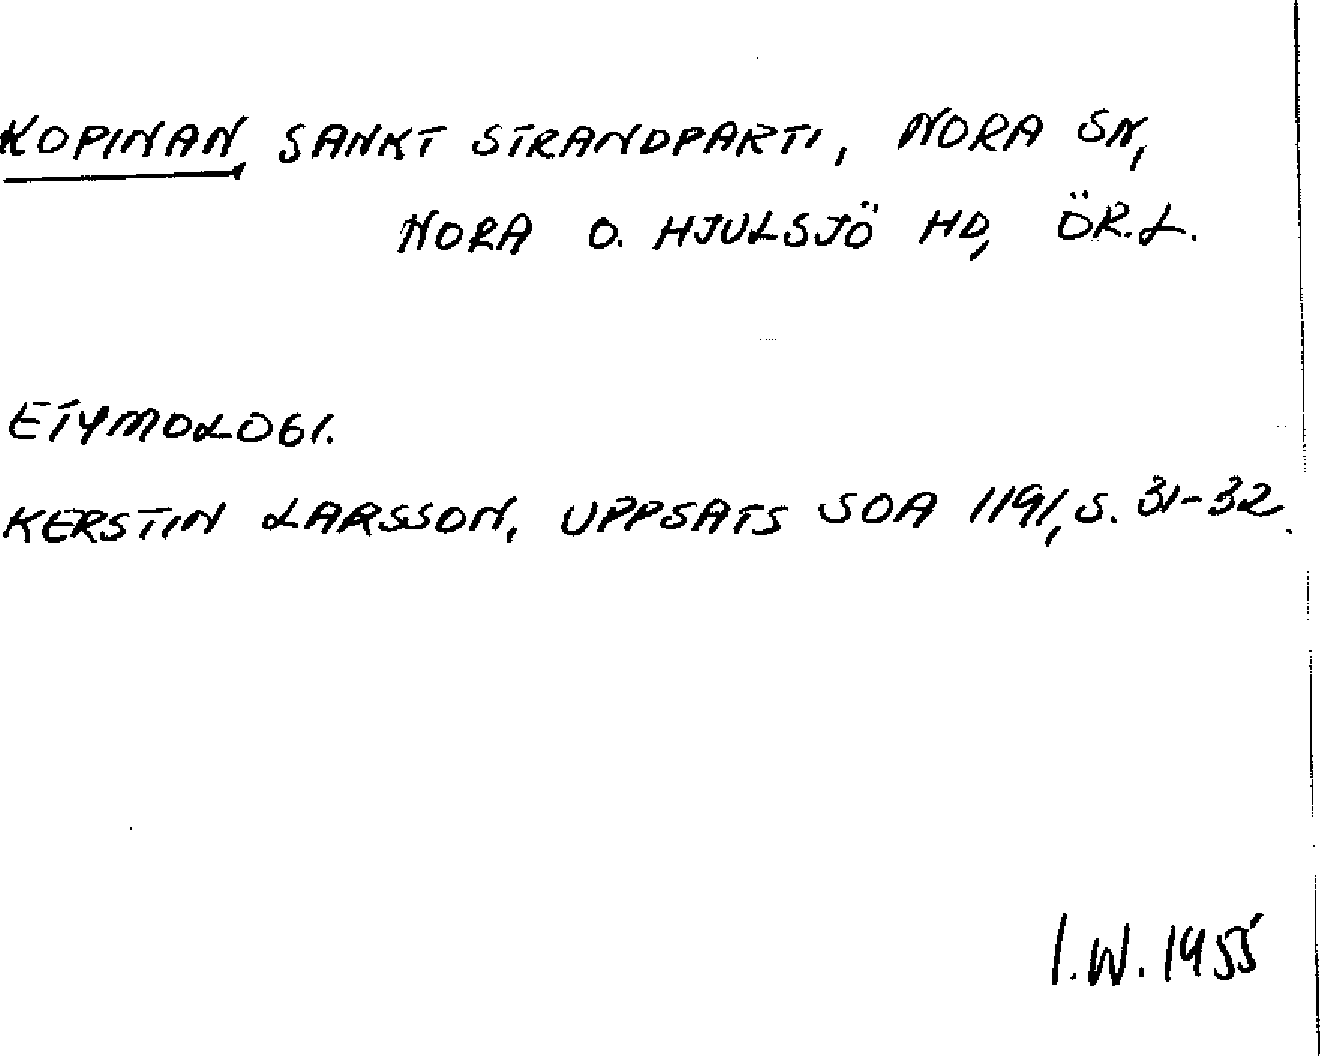 KOPINAN, SANKT STRANDPARTI, NORA SN,
NORA O. HJULSJÖ HD, ÖR.L.
ETYMOLOGI.
KERSTIN LARSSON, UPPSATS SOA 1191, S. 31-32.
I.W. 1955